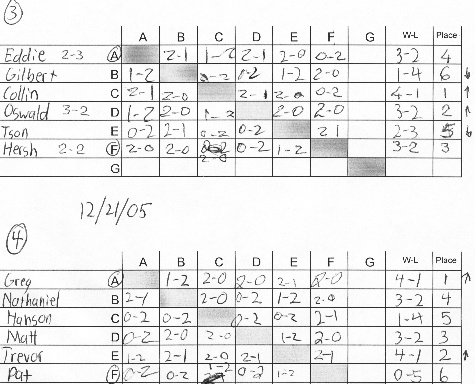 3
A B C D E F G W-L Place
Eddie 2-3 A 2-1 1-2 2-1 2-0 0-2 3-2 4
Gilbert B 1-2 0-2 0-2 1-2 2-0 1-4 6
Collin C 2-1 2-0 2-1 2-0 0-2 4-1 1
Oswald 3-2 D 1-2 2-0 1-2 2-0 2-0 3-2 2
Tson E 0-2 2-1 0-2 0-2 2 1 2-3 5
Hersh 2-2 F 2-0 2-0 2-0 0-2 1-2 3-2 3
G
12/21/05
4
A B C D E F G W-L Place
Greg A 1-2 2-0 2-0 2-1 2-0 4-1 1
Nathaniel B 2-1 2-0 0-2 1-2 2-0 3-2 4
Hanson C 0-2 0-2 0-2 0-2 2-1 1-4 5
Matt D 0-2 2-0 2-0 1-2 2-0 3-2 3
Trevor E 1-2 2-1 2-0 2-1 2-1 4-1 2
Pat F 0-2 0-2 1-2 0-2 1-2 0-5 6